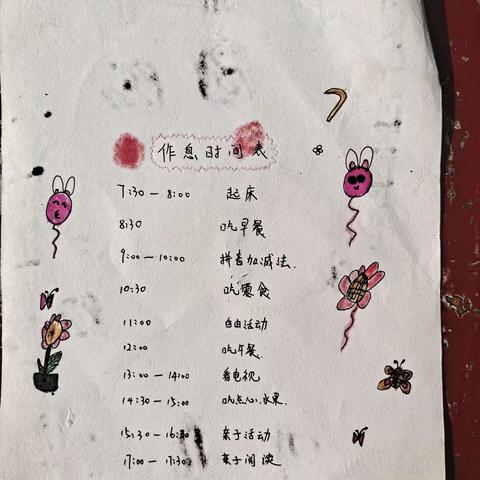 作息时间表
7:30 — 8:00 起床
8:30 吃早餐
9:00 — 10:00 拼音加减法.
10:30 吃零食
11:00 自由活动
12:00 吃午餐.
13:00 — 14:00 看电视
14:30 — 15:00 吃点心.水果.
15:30 — 16:30 亲子活动
17:00 — 17:30 亲子阅读